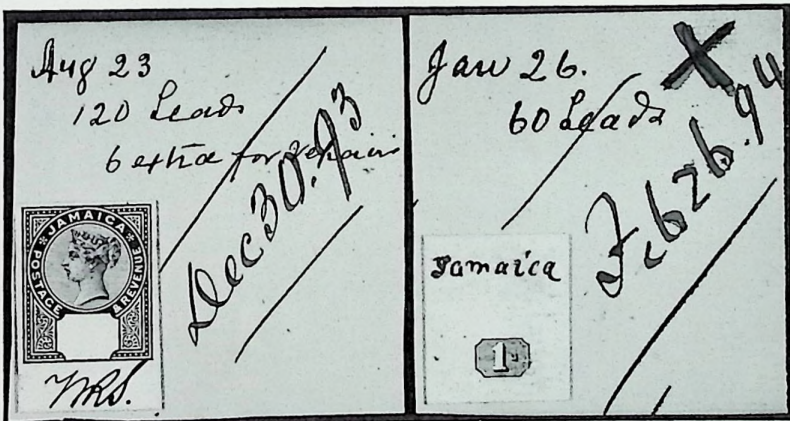 Aug 23
120 Leads
6 extra for repairs
Dec 30.93
JAMAICA
POSTAGE & REVENUE
WRS.
Jan 26.
60 Leads
Feb 26.94
Jamaica
1d